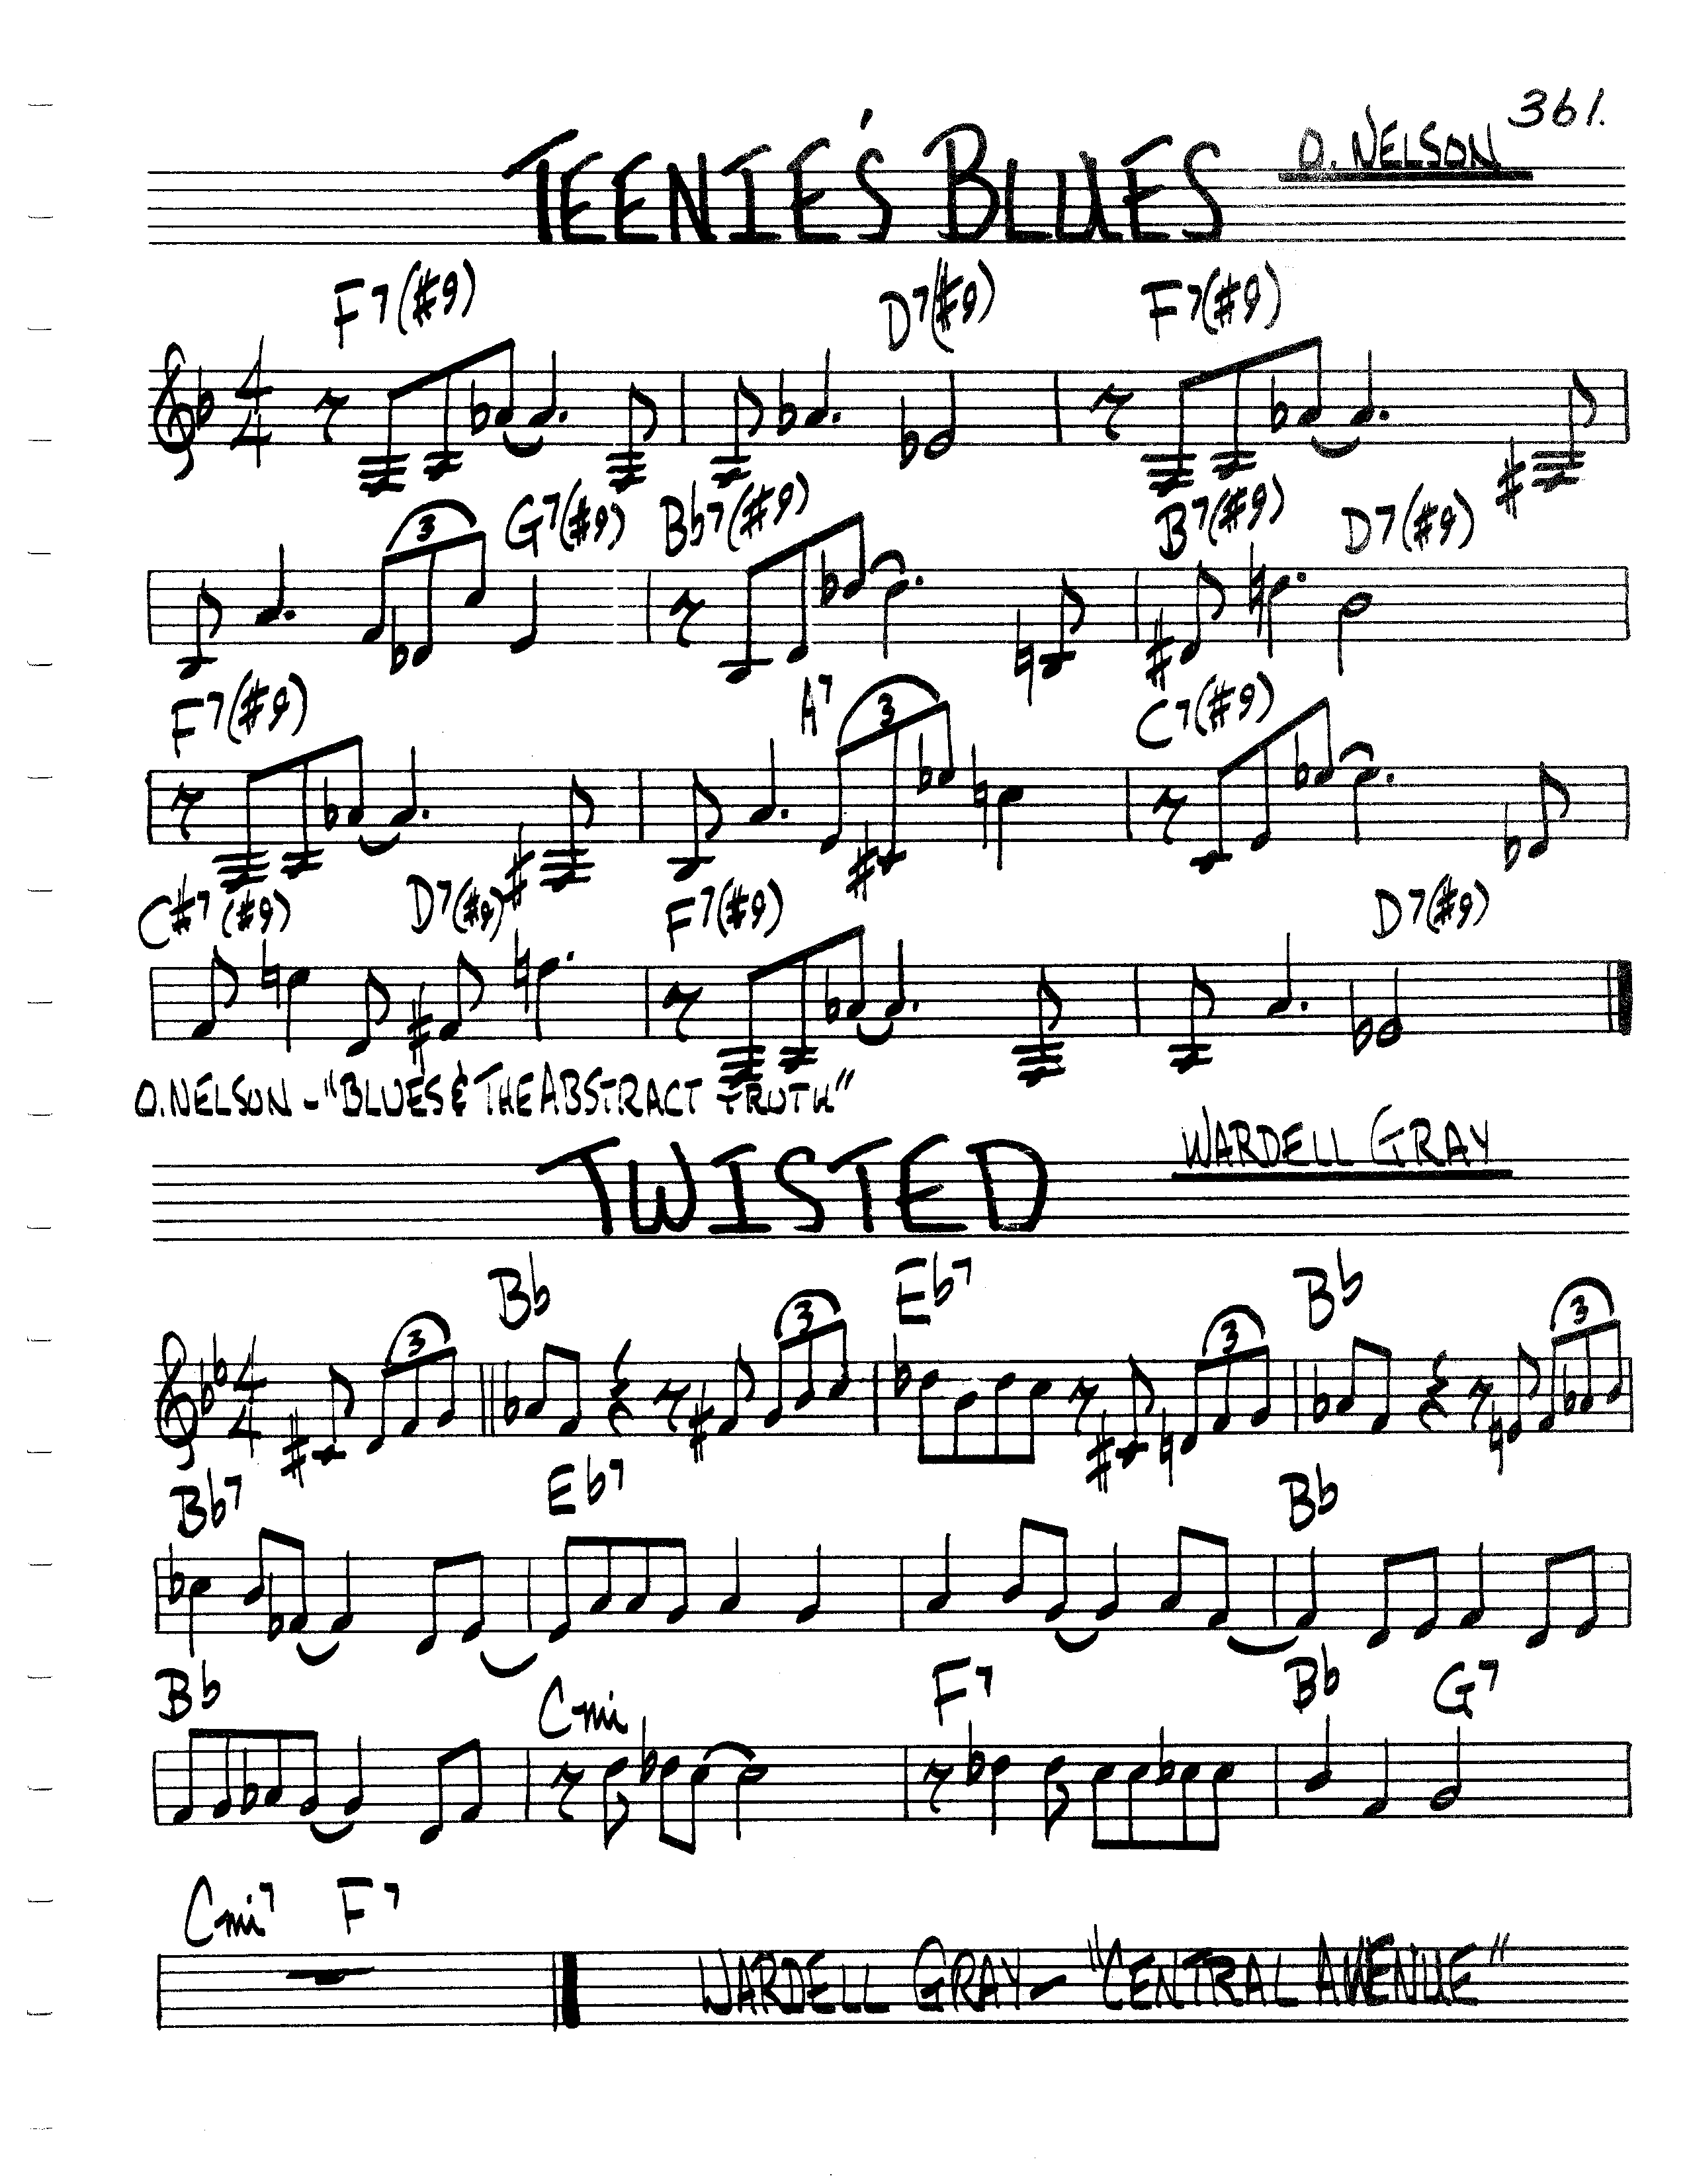 361.
TEENIE'S BLUES O. NELSON
F7(#9) D7(#9) F7(#9)
4/4
3 G7(#9) Bb7(#9) B7(#9) D7(#9)
F7(#9) A7 3 C7(#9)
C#7(#9) D7(#9) F7(#9) D7(#9)
O. NELSON - "BLUES & THE ABSTRACT TRUTH"
TWISTED WARDELL GRAY
Bb Eb7 Bb
4/4 3 3 3 3
Bb7 Eb7 Bb
Bb Cmi F7 Bb G7
Cmi7 F7
WARDELL GRAY - "CENTRAL AVENUE"